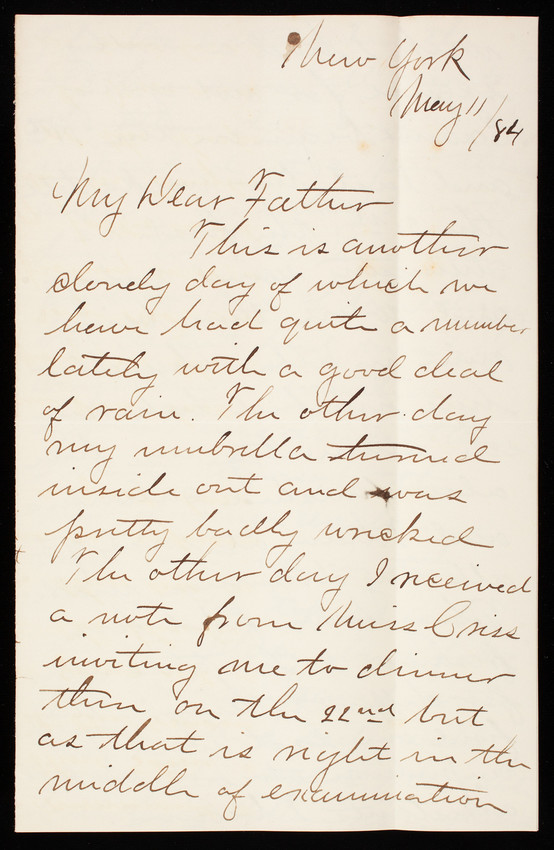 New York
May 11/84
My Dear Father
This is another
clondy day of which we
have had quite a number
lately with a good deal
of rain. The other day
my umbrella turned
inside out and was
pretty badly wrecked
The other day I received
a note from Miss Criss
inviting me to dinner
then on the 22nd but
as that is right in the
middle of examination